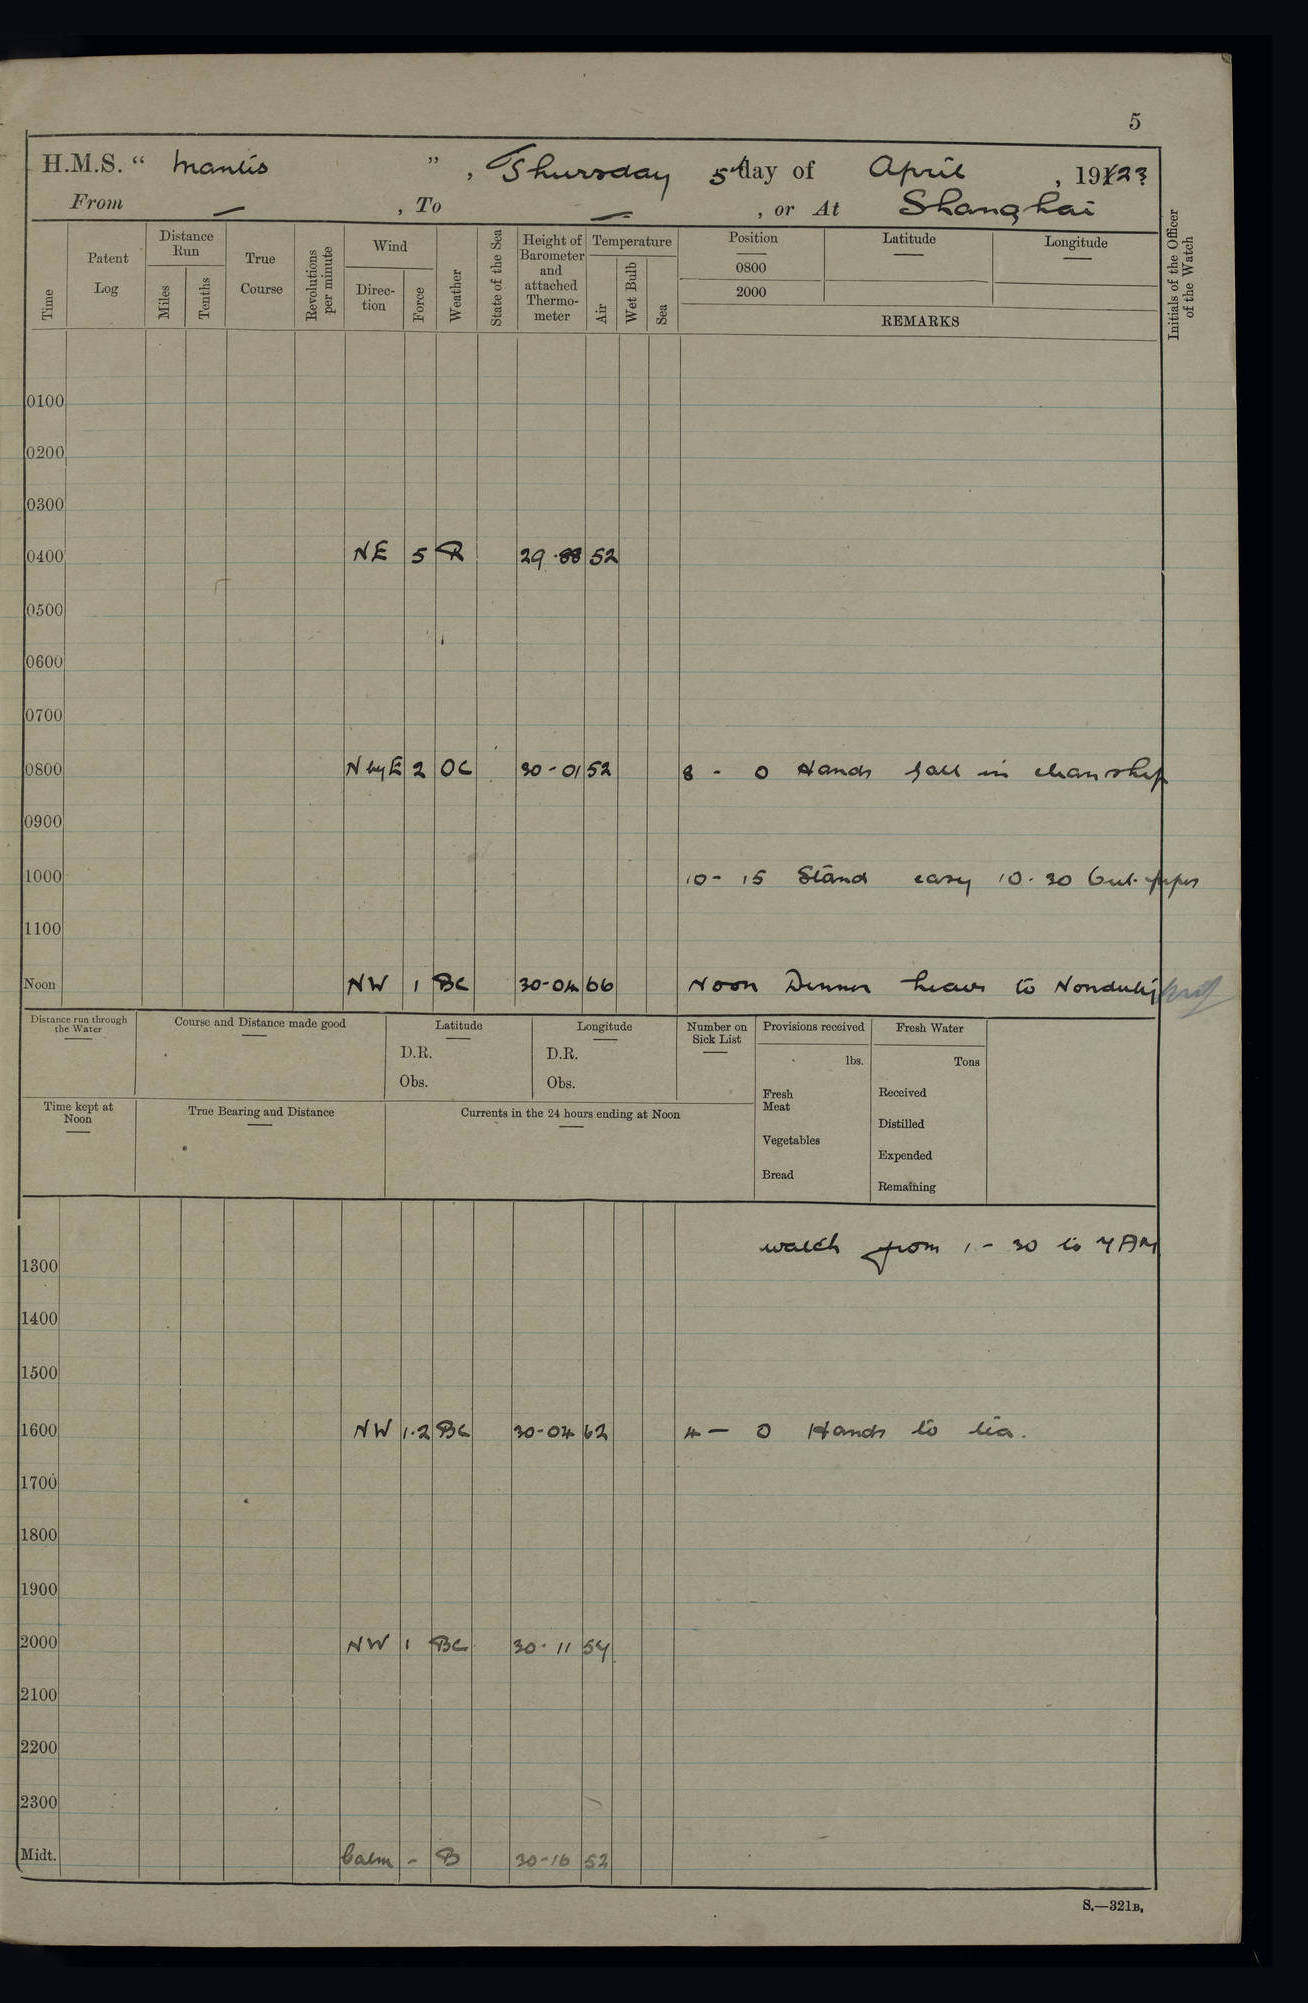 5
H.M.S. “ Mantis ” , Thursday 5th day of April , 1923
From — , To — , or At Shanghai
Time
Patent Log
Distance Run
Miles
Tenths
True Course
Revolutions per minute
Wind
Direc-tion
Force
Weather
State of the Sea
Height of Barometer and attached Thermo-meter
Temperature
Air
Wet Bulb
Sea
Position
0800
2000
Latitude
Longitude
REMARKS
Initials of the Officer of the Watch
0100
0200
0300
0400 NE 5 R 29.88 52
0500
0600
0700
0800 N by E 2 OC 30-01 52 8 - 0 Hands fall in clean ship
0900
1000 10 - 15 Stand easy 10.30 Out pipes
1100
Noon NW 1 BC 30-04 66 Noon Dinner Leave to Nonduty
Distance run through the Water
Course and Distance made good
Latitude
D.R.
Obs.
Longitude
D.R.
Obs.
Number on Sick List
Provisions received
lbs.
Fresh Meat
Vegetables
Bread
Fresh Water
Tons
Received
Distilled
Expended
Remaining
Time kept at Noon
True Bearing and Distance
Currents in the 24 hours ending at Noon
watch from 1 - 30 to 7 AM
1300
1400
1500
1600 NW 1.2 BC 30-04 62 4 — 0 Hands to tea.
1700
1800
1900
2000 NW 1 BC 30-11 54
2100
2200
2300
Midt. Calm - B 30-16 52
S.—321B.